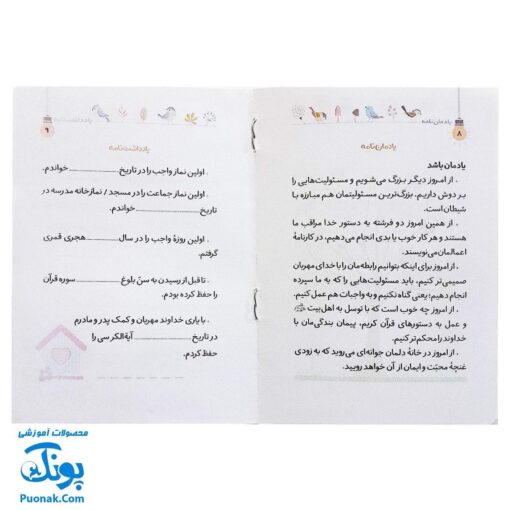 یادمان‌نامه
۸
یادمان‌نامه
یادمان باشد
. از امروز دیگر بزرگ می‌شویم و مسئولیت‌هایی را
بر دوش داریم. بزرگ‌ترین مسئولیتمان هم مبارزه با
شیطان است.
. از همین امروز دو فرشته به دستور خدا مراقب ما
هستند و هر کار خوب یا بدی انجام می‌دهیم، در کارنامهٔ
اعمالمان می‌نویسند.
. از امروز برای اینکه بتوانیم رابطه‌مان را با خدای مهربان
صمیمی‌تر کنیم، باید مسئولیت‌هایی را که به ما سپرده
انجام دهیم؛ یعنی گناه نکنیم و به واجبات هم عمل کنیم.
. از امروز چه خوب است که با توسل به اهل‌بیت
و عمل به دستورهای قرآن کریم، پیمان بندگی‌مان با
خداوند را محکم‌تر کنیم.
. از امروز در خانهٔ دلمان جوانه‌ای می‌روید که به زودی
غنچهٔ محبّت و ایمان از آن خواهد رویید.
۹
یادداشت‌نامه
. اولین نماز واجب را در تاریخ ـــــــ خواندم.
. اولین نماز جماعت را در مسجد / نمازخانه مدرسه در
تاریخ ـــــــ خواندم.
. اولین روزهٔ واجب را در سال ـــــــ هجری قمری
گرفتم.
. تا قبل از رسیدن به سنّ بلوغ ـــــــ سوره قرآن
را حفظ کرده بودم.
. با یاری خداوند مهربان و کمک پدر و مادرم
در تاریخ ـــــــ آیةالکرسی را
حفظ کردم.
محصولات آموزشی
پونک
Puonak.Com